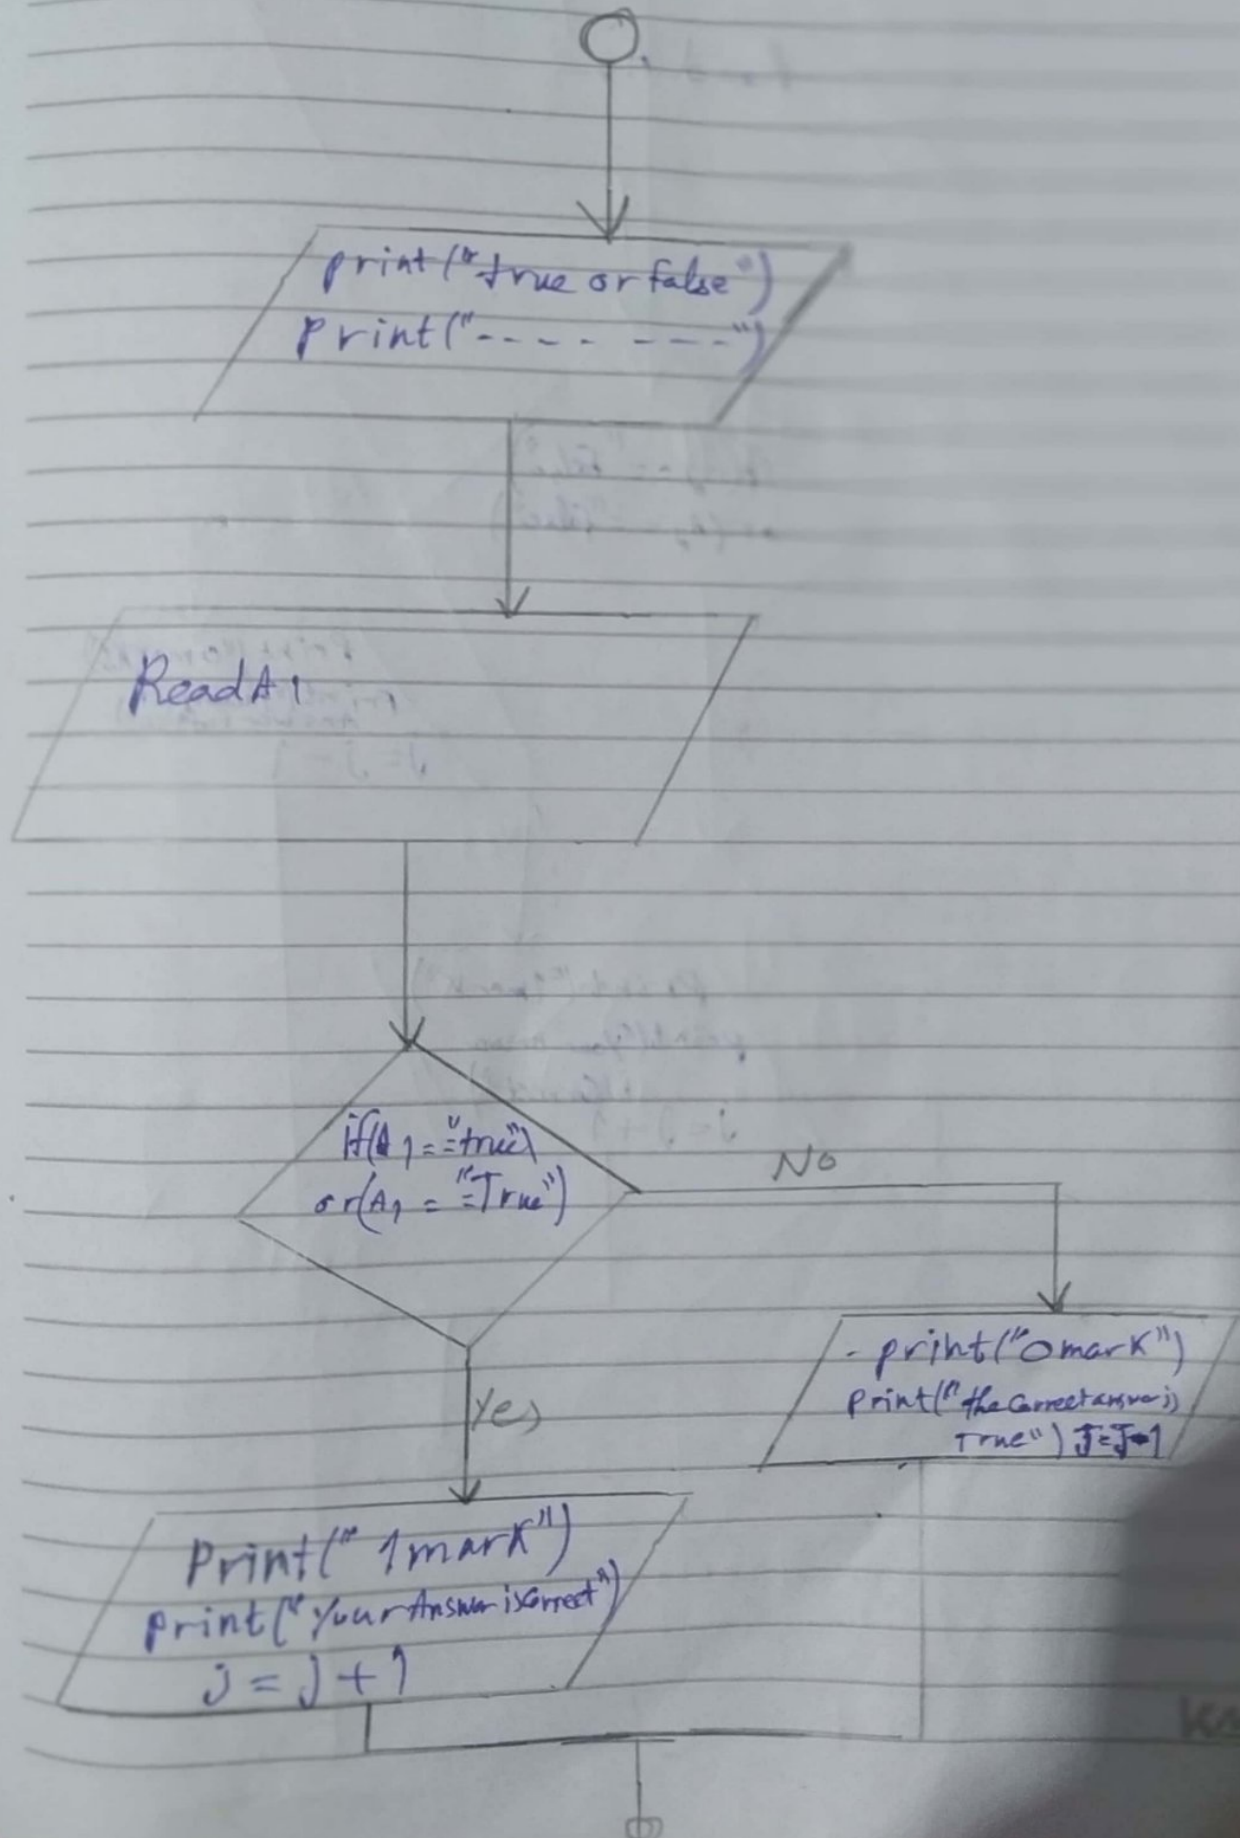 print("true or false")
print("---- ---")
Read A1
if(A1=="true")
or(A1=="True")
No
- print("0mark")
print("the Correct answer is
True") J=J-1
Yes
Print("1mark")
print("Your Answer is Correct")
j=j+1